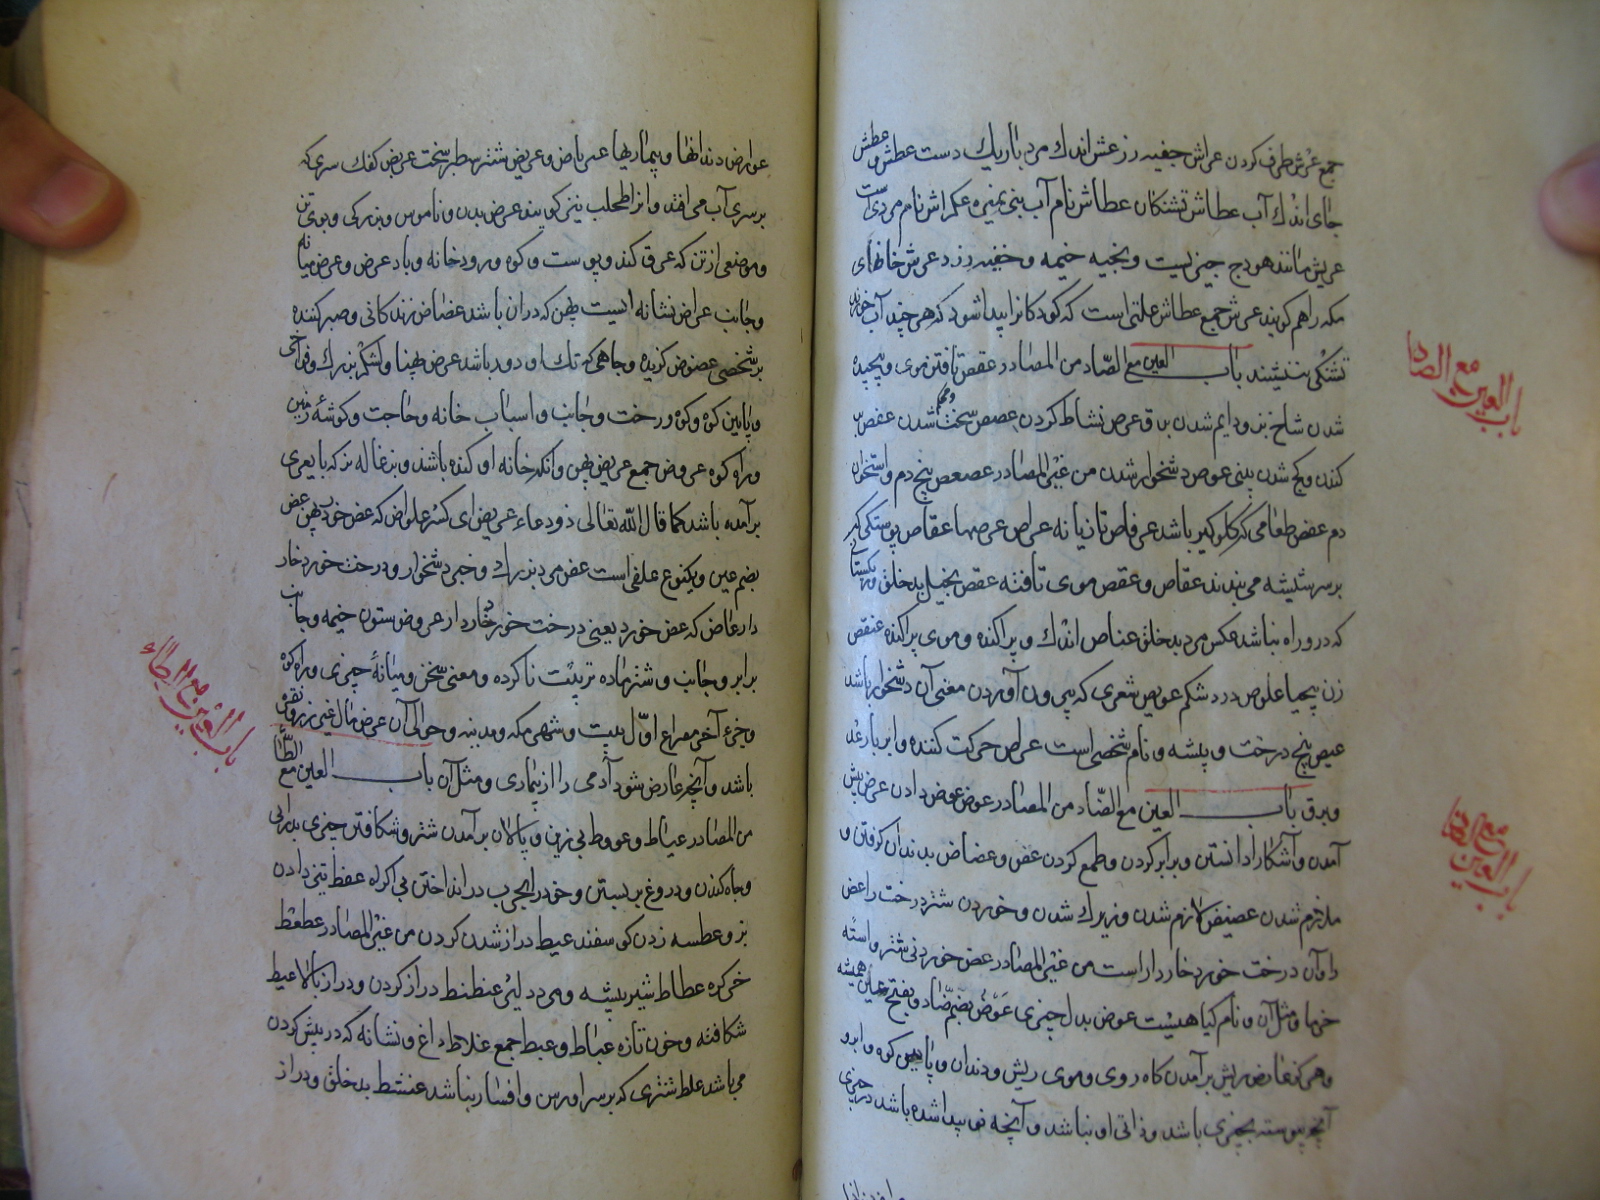 جمع عرش طرف کردن عراش جفیه رز عش اندك مرد باریك دست عطش و عطش
جای اندك آب عطاش تشنکان عطاش نام آب بنی نمیره عکراش نام مردی است
عریش مانند هودج چیزیست و نجیه خیمه و خفیه رز د عرش خانهای
مکه را هم کویند عرش جمع عطاش علتی است که کودکانرا پیدا شود که هر چند آب خورند
تشنکی ننشیند باب العین مع الصّاد من المصادر عقص تافتن موی و پیچیده
شدن شاخ بز و دایم شدن برق عرص نشاط کردن عصص سخت و محکم شدن عفص بر
کندن و کج شدن بینی عوص دشخوار شدن من غیر المصادر عصعص بیخ دم و استخوان
دم عفص طعامی که کلوکیر باشد عرفاص تازیانه عراص عرصها عقاص پوستکی که
بر سر شیشه می بندند عقاص و عقص موی تافته عقص بخیل بدخلق و ریکستانی
که در و راه نباشد عکص مرد بدخلق عناص اندك و پراکنده و موی پراکنده عنقص
زن بیحیا علوص درد شکم عویص شعری که بیرون آوردن معنی آن دشخوار باشد
عیص بیخ درخت و بیشه و نام شخصی است عراص حرکت کننده و ابر با رعد
و برق باب العین مع الضّاد من المصادر عوض عوض دادن عرض پیش
آمدن و آشکارا دانستن و برابر کردن و طمع کردن عض و عضاض بدندان کرفتن و
ملازم شدن عضیض لازم شدن و زیرك شدن و خوردن شتر درخت را عض
دران درخت خورد خاردار است من غیر المصادر عض خوردنی شتر و استه
خرما و مثل آن و نام کیاهیست عوض بدل چیزی عوض بضم ضاد و بفتح عین همیشه
و هرکز عارض ریش برآمدن کاه روی و موی ریش و دندان و پایین کوه و ابر و
آنچه پیوسته بچیزی باشد و ذاتی او نباشد و آنچه نو پیدا شده باشد در چیزی
باب العین مع الصاد
باب العین مع الضاد
عوارض دندانها و بیماریها عرباض و عریض شتر سطبر سخت عربض کفك سری که
بر سر آب می افتد و انرا طحلب نیز کویند عرض بدن و ناموس و بزرکی و بوی تن
و موضعی از تن که عرق کند و پوست و کوه و رودخانه و باد عرض و عرض میانه
و جانب عراض نشانه ایست پهن که دران باشد عضاض زندکانی و صبر کننده
بر سختی عضوض کزنده و چاهی که تك او دور باشد عرض پهنا و لشکر بزرك و فراخی
و پایین کوه و کوه و رخت و جانب و اسباب خانه و حاجت و کوشهٔ زمین
و راه کوه عروض جمع عریض پهن و آنکه خانه او کنده باشند و بزغاله نر که با یعری
برآمده باشد کما قال الله تعالی ذو دعاء عریض ای کثیر علواض که عض خورد پهن عض
بضم عین و یکنوع علفی است عض مرد بزرك و خبر دشخوار و درخت خورد خار
دار عاض که عض خورد یعنی درخت خورد خاردار عروض ستون خیمه و جانب
برابر و جانب و شتر ماده تربیت ناکرده و معنی سخن و میانهٔ چیزی و راه کوه
و جزء آخر مصراع اوّل بیت و شهر مکه و مدینه و حوالی آن عرض مال غیر زر و نقره
باشد و آنچه عارض شود آدمی را از بیماری و مثل آن باب العین مع الطّاء
من المصادر عیاط و عووط بی زین و پالان برآمدن شتر و شکافتن چیزی بدرازی
و چاه کندن و دروغ بربستن و خود را بحرب در انداختن بی اکراه عفط تیز دادن
بز و عطسه زدن کوسفند عیط دراز شدن کردن من غیر المصادر عطعط
خر کره عطاط شیر بیشه و مرد دلیر عنطنط دراز کردن و دراز بالا عبیط
شکافته و خون تازه عباط و عبط جمع علاط داغ و نشانه که در پیش کردن
می باشد علط شتری که بر سر او رسن و افسار نباشد عنشط بدخلق و دراز
باب العین مع الطاء